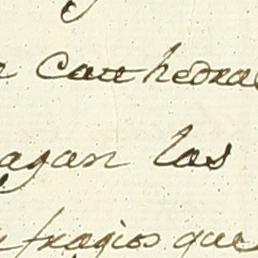 Cathedral
agan las
fragios que